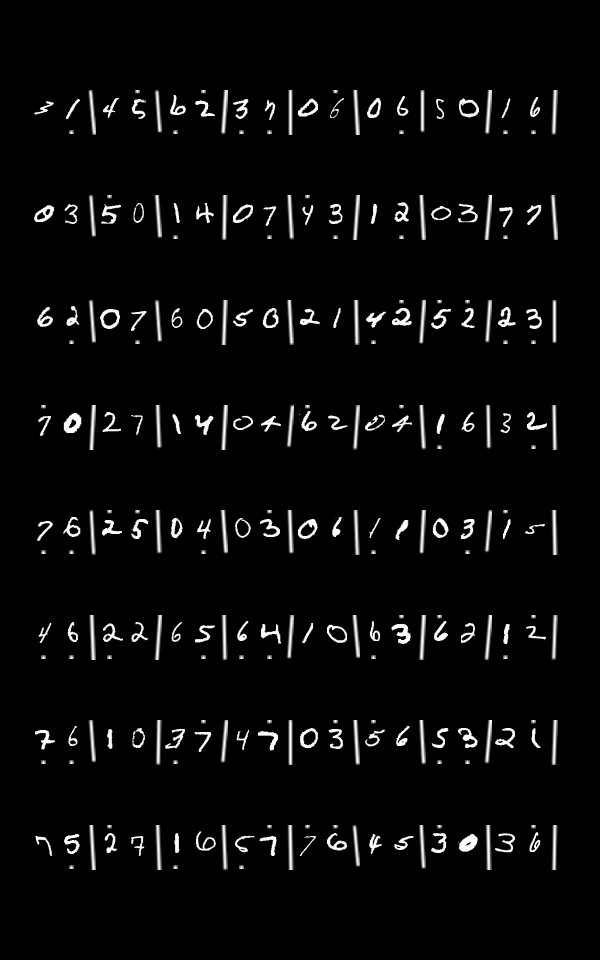 3 1 | 4 5 | 6 2 | 3 7 | 0 6 | 0 6 | 5 0 | 1 6 |
0 3 | 5 0 | 1 4 | 0 7 | 4 3 | 1 2 | 0 3 | 7 7 |
6 2 | 0 7 | 6 0 | 5 0 | 2 1 | 4 2 | 5 2 | 2 3 |
7 0 | 2 7 | 1 4 | 0 4 | 6 2 | 0 4 | 1 6 | 3 2 |
7 6 | 2 5 | 0 4 | 0 3 | 0 6 | 1 1 | 0 3 | 1 5 |
4 6 | 2 2 | 6 5 | 6 4 | 1 0 | 6 3 | 6 2 | 1 2 |
7 6 | 1 0 | 3 7 | 4 7 | 0 3 | 5 6 | 5 3 | 2 1 |
7 5 | 2 7 | 1 6 | 5 7 | 7 6 | 4 5 | 3 0 | 3 6 |